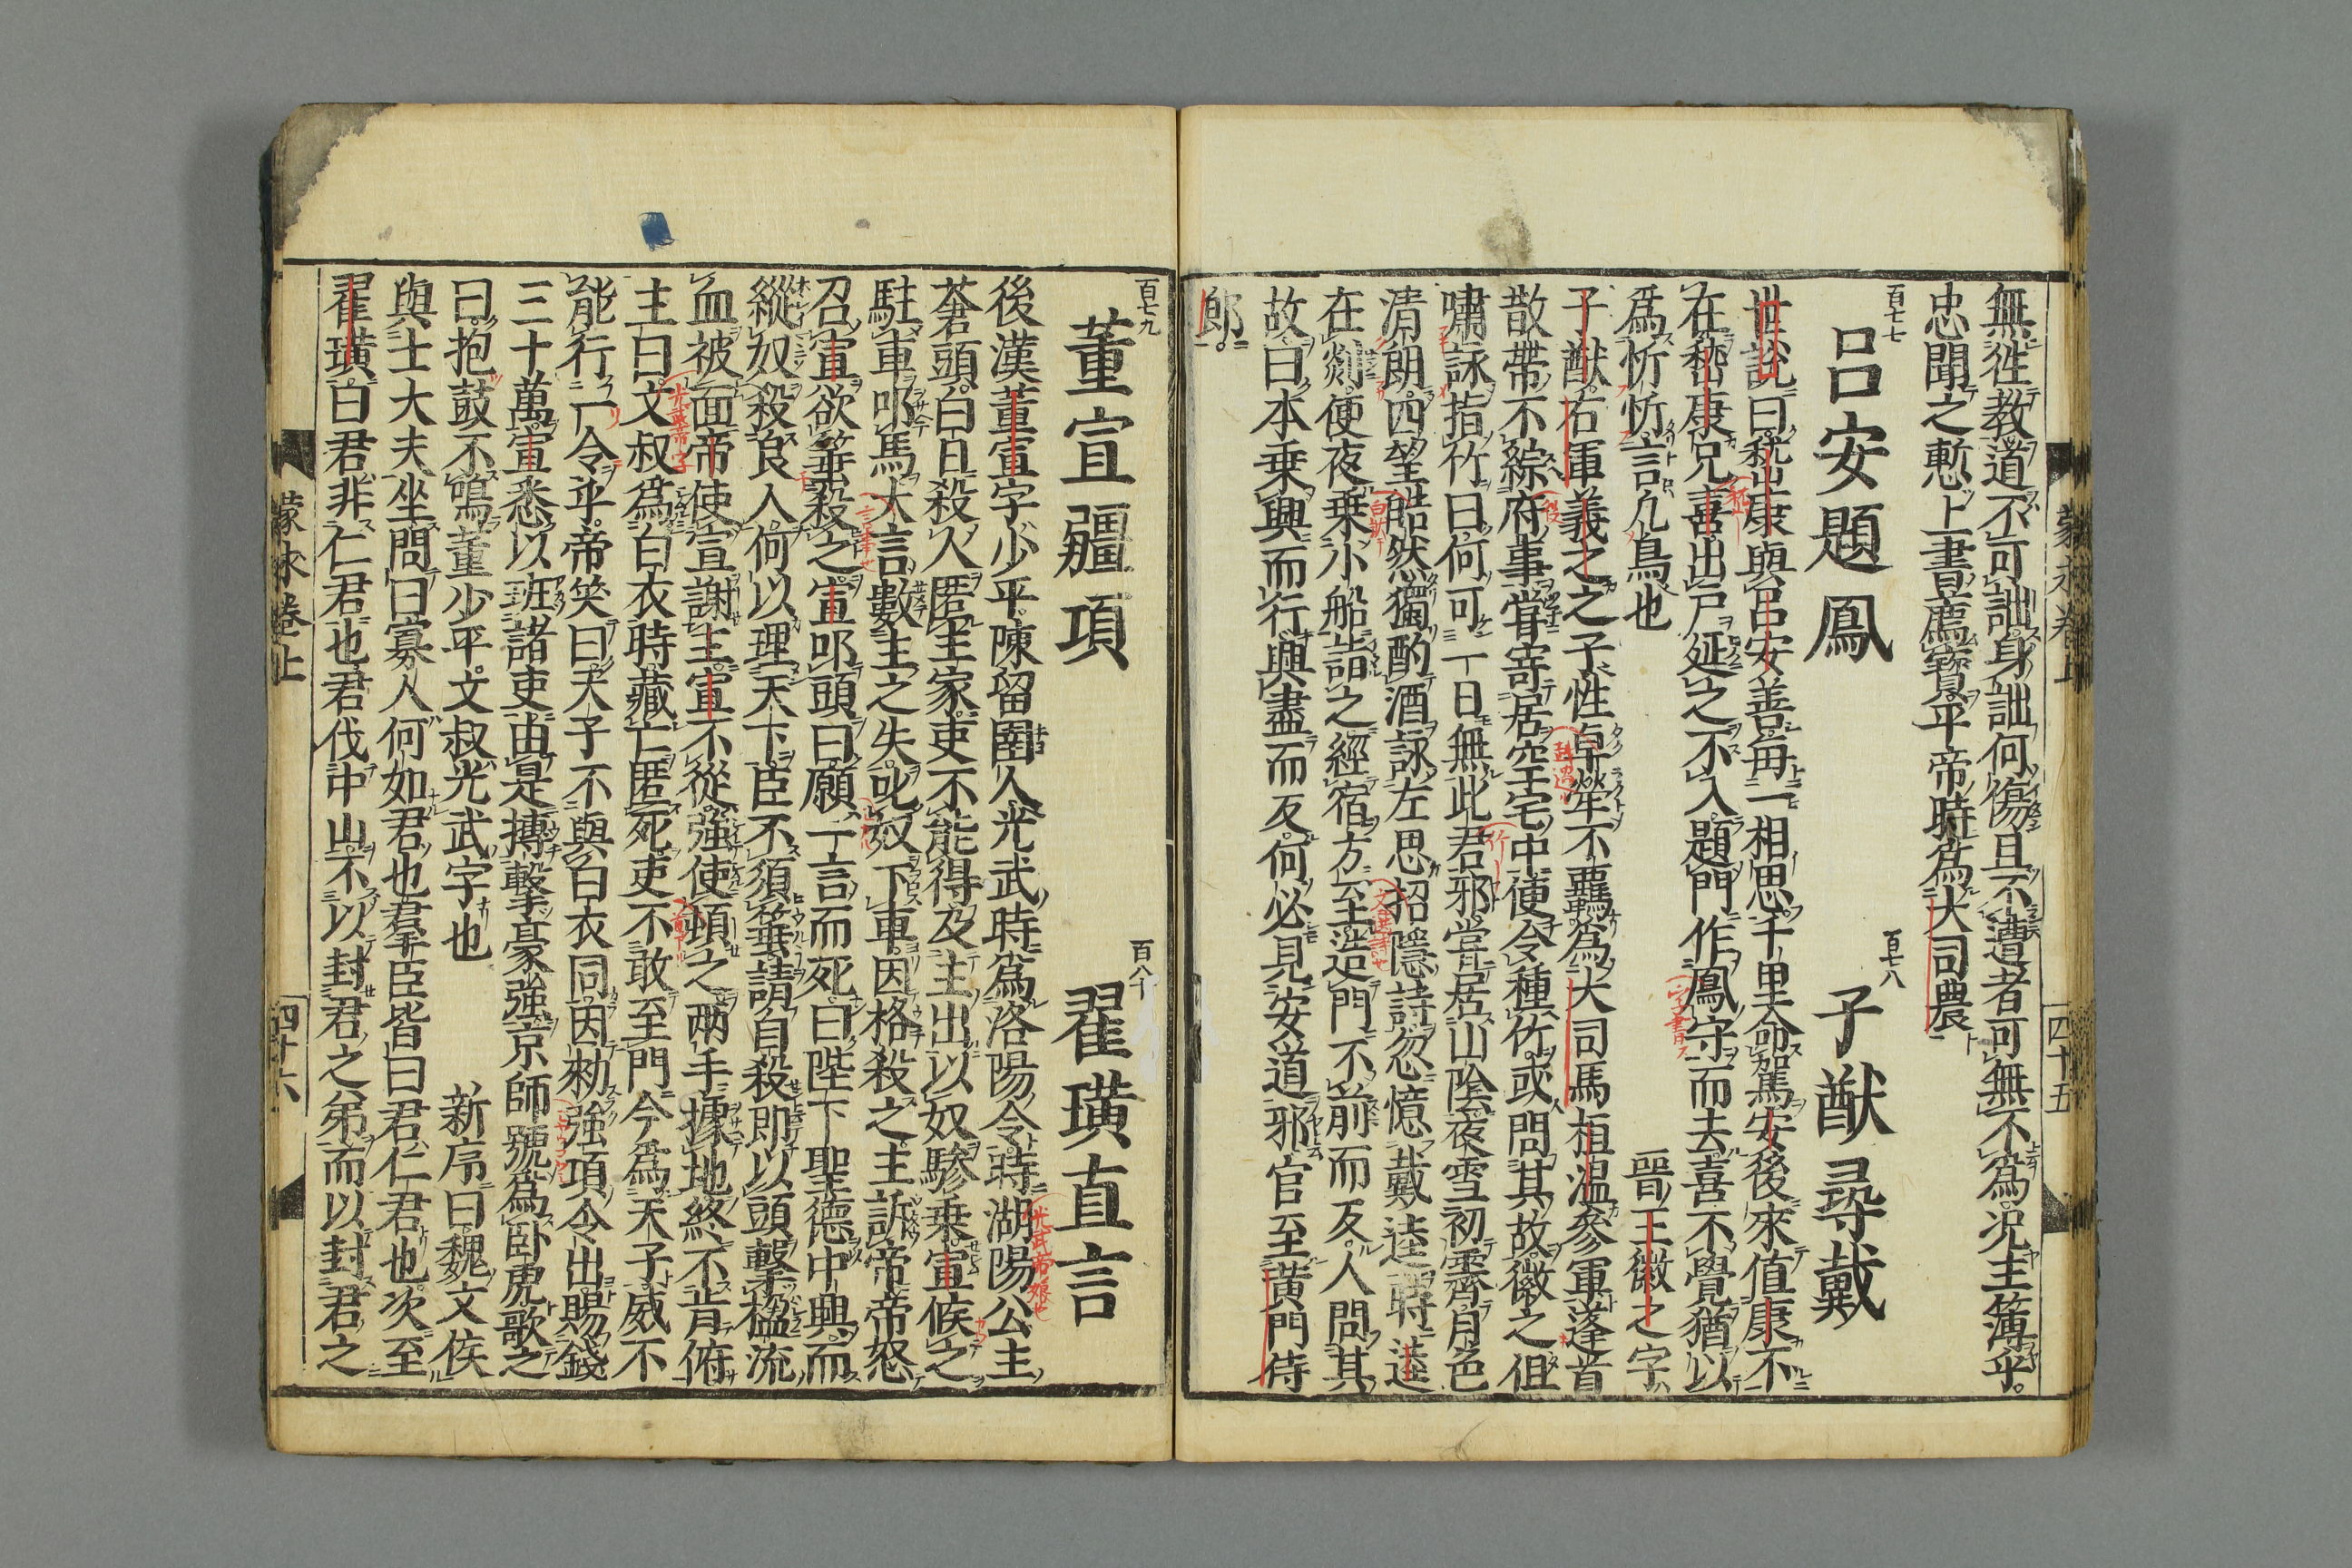 蒙求卷上
四十五
無徃教道不可詘身詘何傷且不遭者可無不爲况主簿乎
忠聞之慙上書薦寶平帝時爲大司農
百七七
呂安題鳳
百七八
子猷尋戴
世說曰嵇康與呂安善每一相思千里命駕安後來值康不
在嵇康兄喜出戸延之不入題門作鳳守而去喜不覺猶以
爲忻忻言凢鳥也
晉王徽之字
子猷右軍羲之之子性卓犖不羈爲大司馬桓温參軍蓬首
散帶不綜府事甞寄居空宅中便令種竹或問其故徽之但
嘯詠指竹曰何可一日無此君邪甞居山陰夜雪初霽月色
清朗四望皓然獨酌酒詠左思招隱詩忽憶戴逵時逵
在剡便夜乗小船詣之經宿方至造門不前而反人問其
故曰本乗興而行興盡而反何必見安道邪官至黃門侍
郎
百七九
董宣彊項
百八十
翟璜直言
後漢董宣字少平陳留圉人光武時爲洛陽令時湖陽公主
蒼頭白日殺人匿主家吏不能得及主出以奴驂乗宣候之
駐車叩馬大言數主之失叱奴下車因格殺之主訴帝帝怒
召宣欲箠殺之宣叩頭曰願一言而死曰陛下聖德中興而
縱奴殺良人何以理天下臣不須箠請自殺即以頭擊楹流
血被面帝使宣謝主宣不從強使頓之兩手據地終不肯俯
主曰文叔爲白衣時藏亡匿死吏不敢至門今爲天子威不
能行一令乎帝笑曰天子不與白衣同因勑強項令出賜錢
三十萬宣悉以班諸吏由是搏擊豪強京師號爲卧虎歌之
曰抱鼓不鳴董少平文叔光武字也
新序曰魏文侯
與士大夫坐問曰寡人何如君也羣臣皆曰君仁君也次至
翟璜曰君非仁君也君伐中山不以封君之弟而以封君之
蒙求卷上
四十六